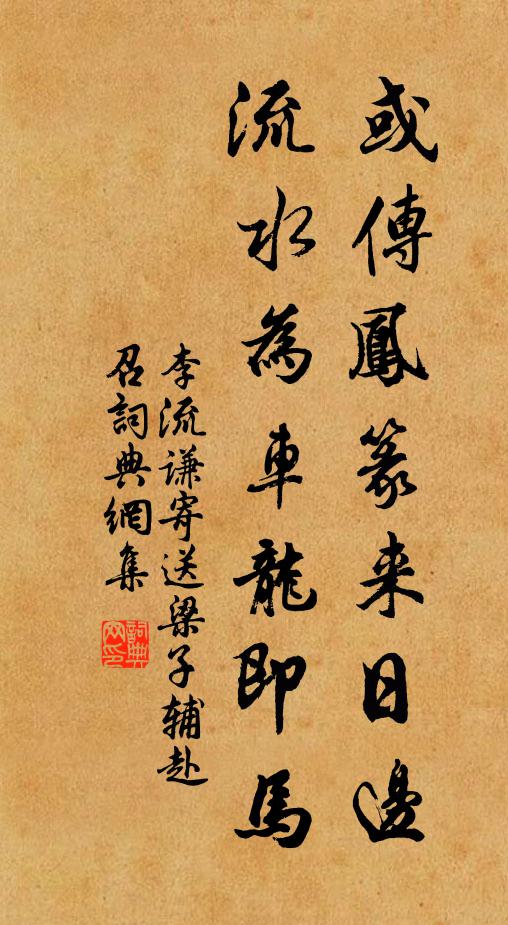 或傳鳳篆来日邊
流水為車龍即馬
李流谦寄送梁子辅赴
召詞典網集
詞典網印